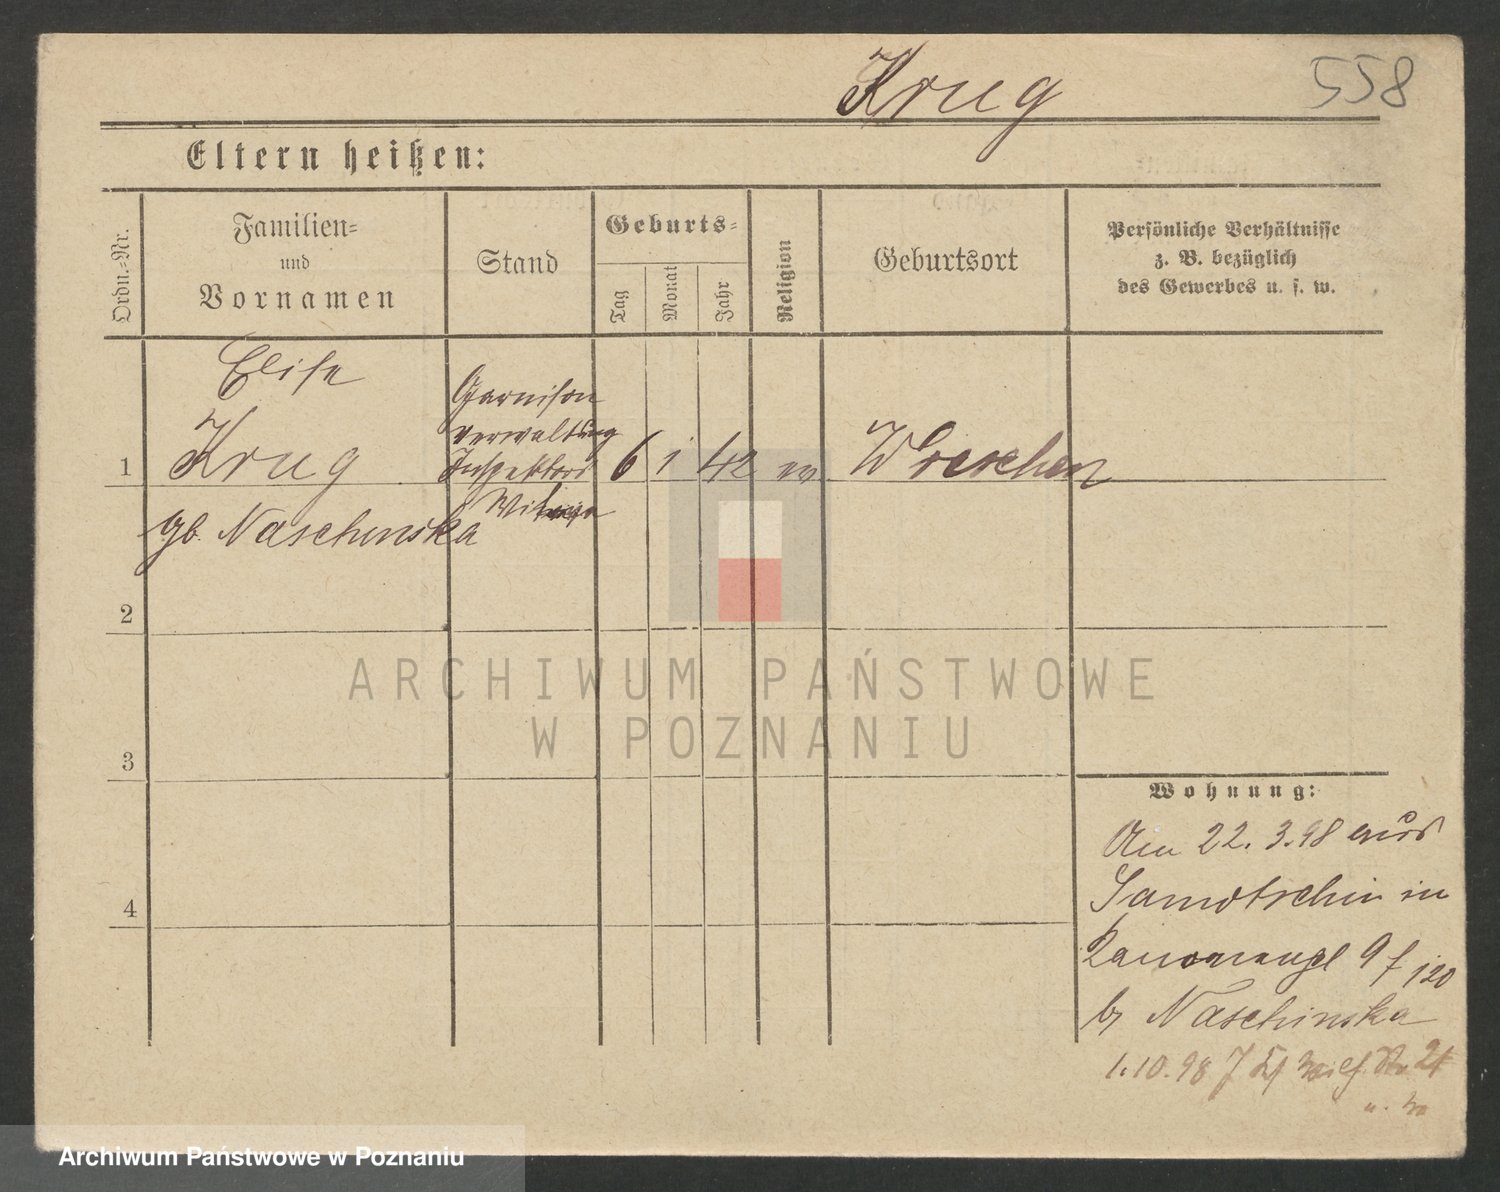 Krug
558
Eltern heißen:
Ordn.-Nr.
Familien-
und
Vornamen
Stand
Geburts-
Tag
Monat
Jahr
Religion
Geburtsort
Persönliche Verhältnisse
z. B. bezüglich
des Gewerbes u. s. w.
Elise
Garnison
verwaltung
1 Krug Inspektors 6 1 42 Wreschen
Witwe
gb. Naschinska
2
ARCHIWUM PAŃSTWOWE
W POZNANIU
3
Wohnung:
Am 22.3.98 aus
Samotschin in
4
9 f 120
b/ Naschinska
1.10.98 7
Archiwum Państwowe w Poznaniu